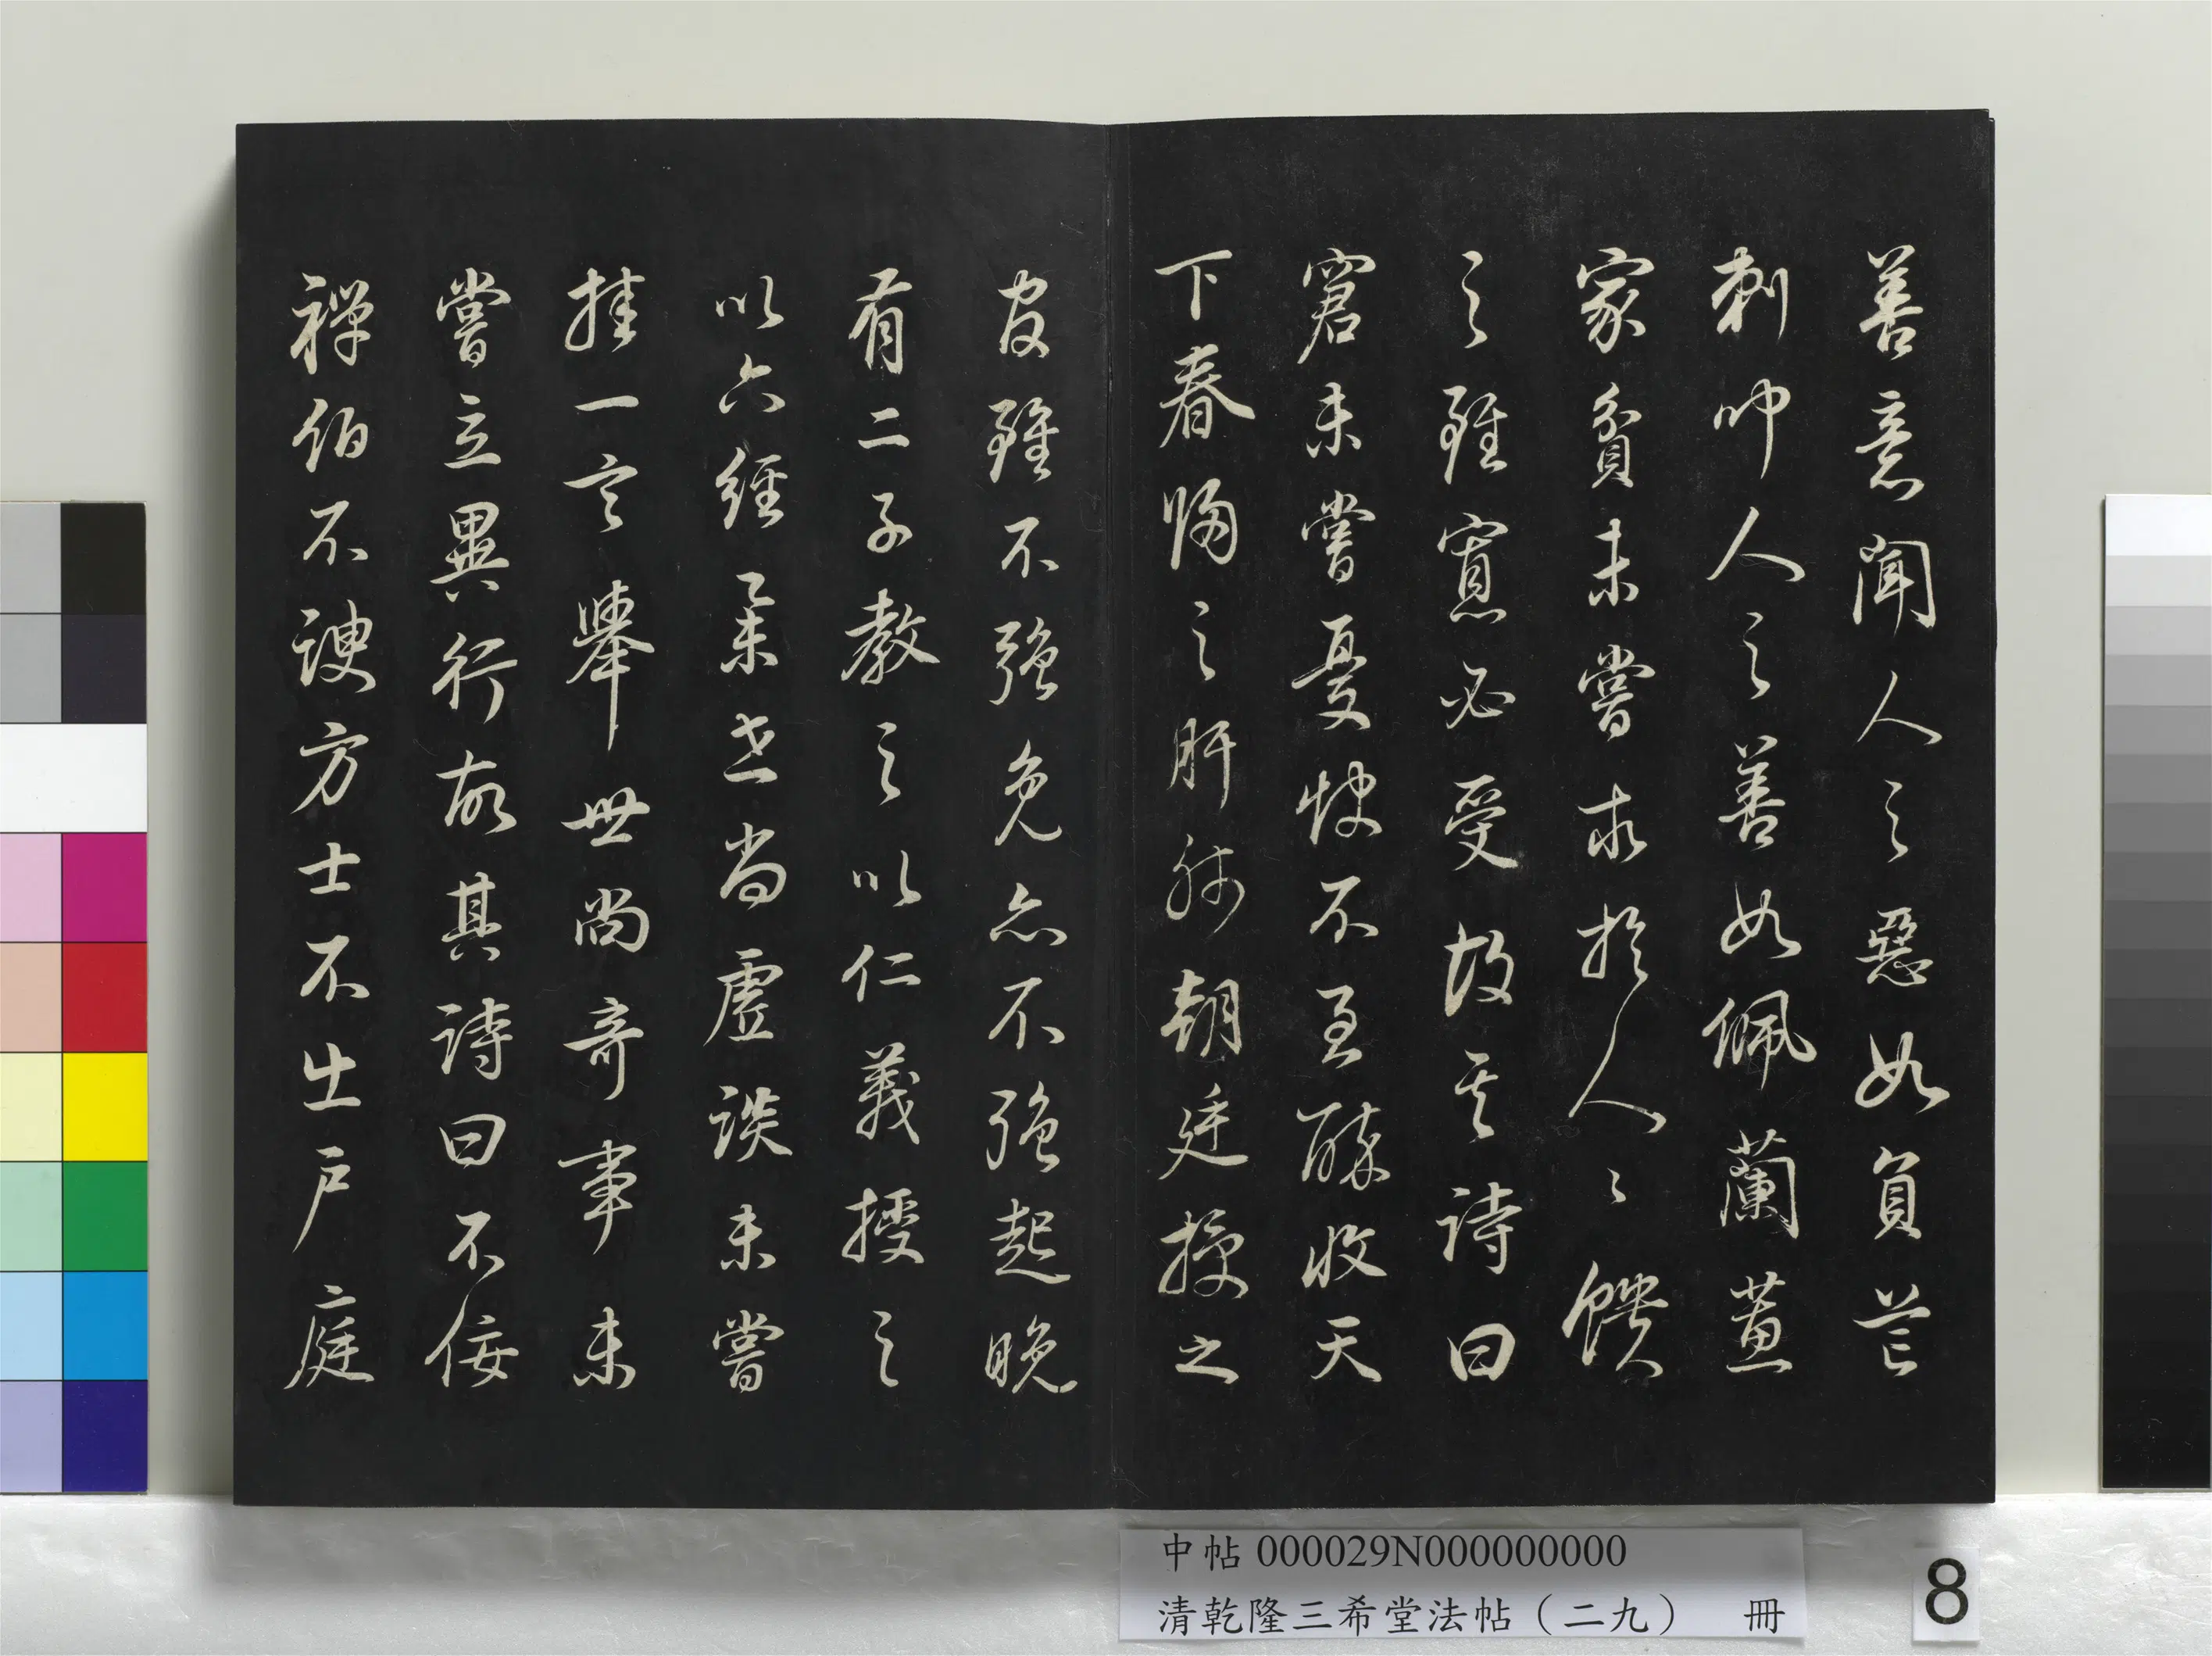 善意聞人之惡如負芒
刺聞人之善如佩蘭蕙
家貧未嘗求於人〻饋
之雖寡必受故其詩曰
窘未嘗憂飲不至醉收天
下春歸之肝肺朝廷授之
官雖不强免亦不强起晚
有二子教之以仁義授之
以六經舉世尚虛談未嘗
挂一言舉世尚奇事未
嘗立異行故其詩曰不佞
禪伯不諛方士不出戶庭
中帖 000029N000000000
清乾隆三希堂法帖（二九） 冊
8